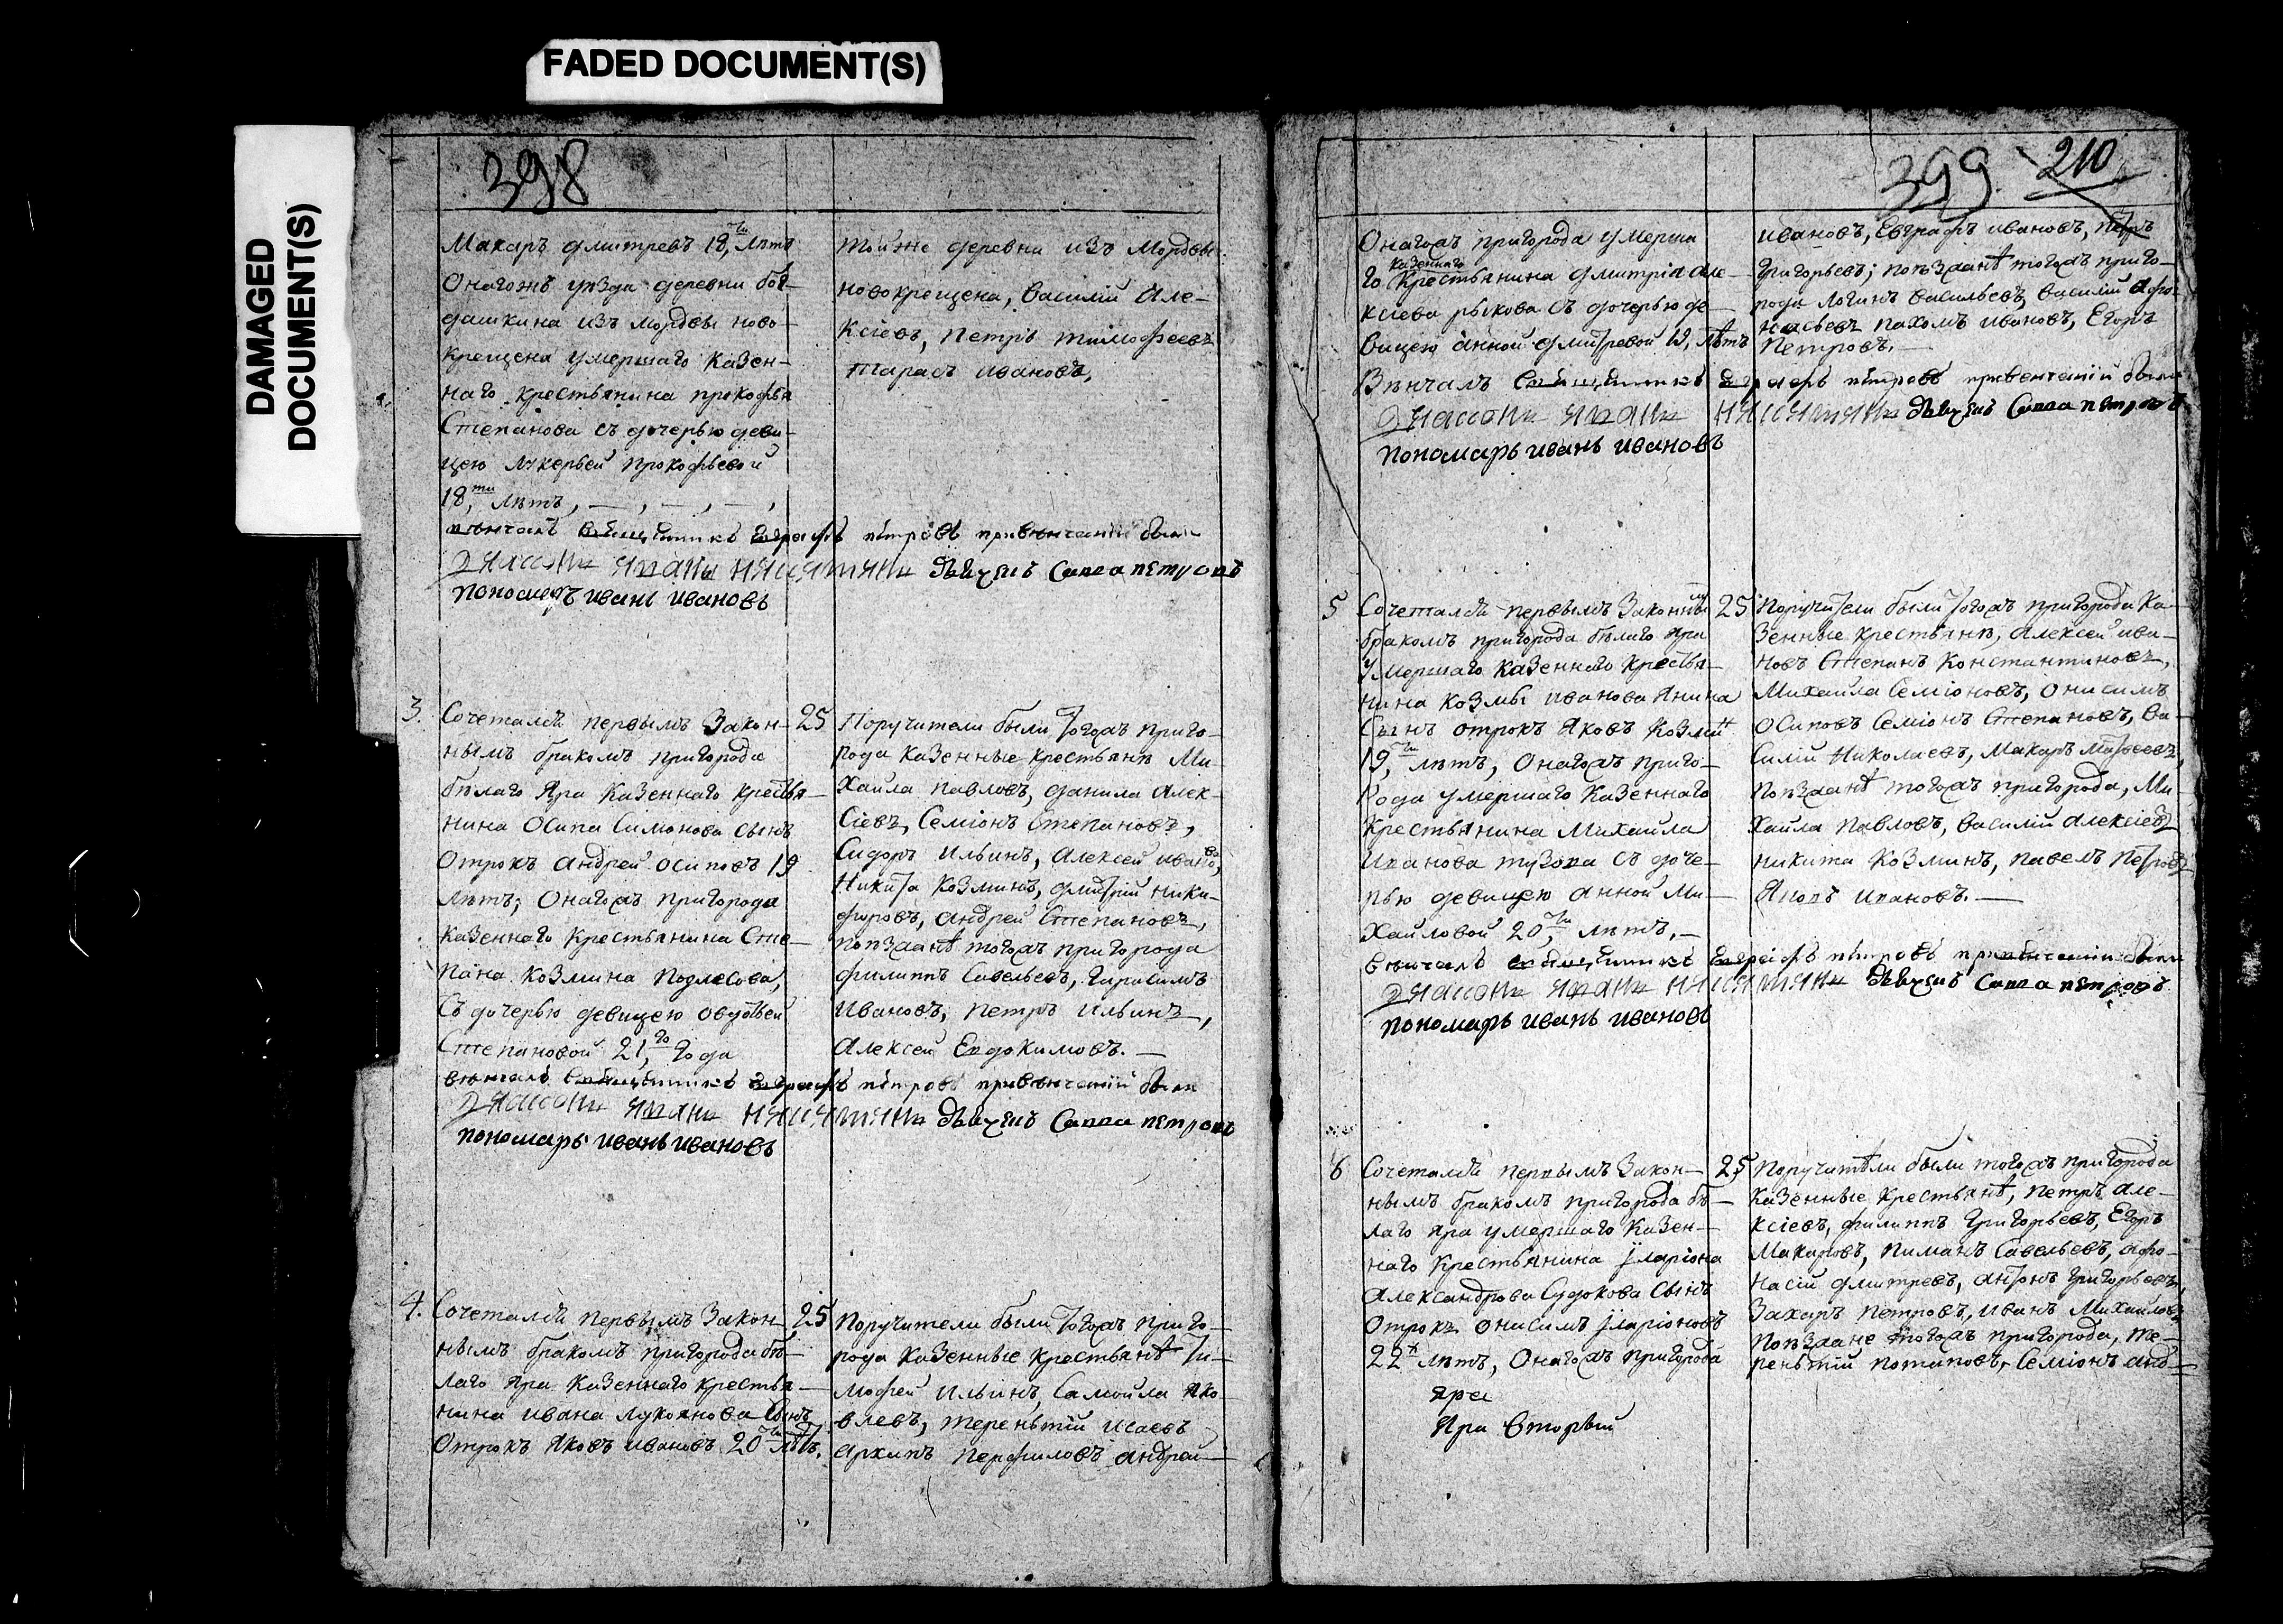 FADED DOCUMENT(S)
DAMAGED
DOCUMENT(S)
398
Макаръ дмитревъ 18,ти лѣтъ
Онагожъ уѣзда деревни бог-
дашкина изъ мордвы ново-
крещена умершаго казен-
наго крестьянина прокофья
Степанова съ дочерью деви-
цею лукерьей прокофьевой
18,ти лѣтъ,
тойже деревни изъ мордвы
новокрещена, василій але-
ксіевъ, петръ тимофеевъ
тарасъ ивановъ,
вѣнчалъ священникъ Евграфъ петровъ привѣнчаніи были
дѣячекъ Савва петровъ
пономарь иванъ ивановъ
3.
Сочетался первымъ закон-
нымъ бракомъ пригорода
бѣлаго Яра казеннаго крестья-
нина Осипа Симонова сынъ
отрокъ андрей осиповъ 19
лѣтъ; онагожъ пригорода
казеннаго крестьянина Сте-
пана козмина Подлесова,
съ дочерью девицею овдотьей
Степановой 21,го года
25
Поручители были тогожъ приго-
рода казенные крестьянѣ Ми-
хаила павловъ, данила алек-
сіевъ, Семіонъ Степановъ,
Сидоръ ильинъ, алексей ивановъ,
Никита козминъ, дмитрій ники-
форовъ, андрей Степановъ,
поѣзжанѣ тогожъ пригорода
филиппъ Савельевъ, гарасимъ
ивановъ, петръ ильинъ,
алексей Евдокимовъ.
вѣнчалъ священникъ Евграфъ петровъ привѣнчаніи были
дѣячекъ Савва петровъ
пономарь иванъ ивановъ
4.
Сочетался первымъ закон-
нымъ бракомъ пригорода бѣ-
лаго яра казеннаго крестья-
нина ивана лукоянова сынъ
отрокъ яковъ ивановъ 20ти лѣтъ.
25
поручители были тогожъ приго-
рода казенные крестьянѣ ти-
мофей ильинъ, Самойла яко-
влевъ, терентій исаевъ
архипъ перфиловъ андрей
399
210
Онагожъ пригорода умерша
го казеннаго крестьянина дмитрія але-
ксіева рыкова съ дочерью де-
вицею анной дмитревой 19, лѣтъ
ивановъ, Евграфъ ивановъ, петръ
григорьевъ; поѣзжанѣ тогожъ приго-
рода логинъ васильевъ, василій афо-
насьевъ пахомъ ивановъ, Егоръ
Петровъ.
Вѣнчалъ священникъ Евграфъ петровъ привенчаніи были
дѣячекъ Савва петровъ
пономарь иванъ ивановъ
5
Сочетался первымъ законнымъ
бракомъ пригорода бѣлаго яра
умершаго казеннаго крестья-
нина козмы иванова Янина
Сынъ отрокъ Яковъ козминъ
19,ти лѣтъ, онагожъ приго-
рода умершаго казеннаго
крестьянина Михаила
иванова тузова съ доче-
рью девицею анной Ми-
хайловой 20,ти лѣтъ.
25
Поручители были тогожъ пригорода ка-
зенные крестьянѣ, алексей ива-
новъ Степанъ константиновъ,
Михаила Семіоновъ, онисимъ
осиповъ Семіонъ Степановъ, ва-
силій Николаевъ, Макаръ матвеевъ,
поѣзжанѣ тогожъ пригорода, Ми
хаила павловъ, василій алексіевъ
никита козминъ, павелъ петровъ
Яковъ ивановъ.
вѣнчалъ священникъ Евграфъ петровъ привѣнчаніи были
дѣячекъ Савва петровъ
пономарь иванъ ивановъ
6
Сочетался первымъ закон-
нымъ бракомъ пригорода бѣ-
лаго яра умершаго казен-
наго крестьянина иларіона
александрова Судокова сынъ
отрокъ онисимъ иларіоновъ
22х лѣтъ, онагожъ пригорода
25
Поручители были тогожъ пригорода
казенные крестьянѣ, петръ але-
ксіевъ, филиппъ григорьевъ, Егоръ
Макаровъ, пиманъ Савельевъ, афо-
насій дмитревъ, антонъ григорьевъ,
захаръ петровъ, иванъ Михайловъ,
поѣзжане тогожъ пригорода, те-
рентій потаповъ, Семіонъ анд-
яра
Яра вторый